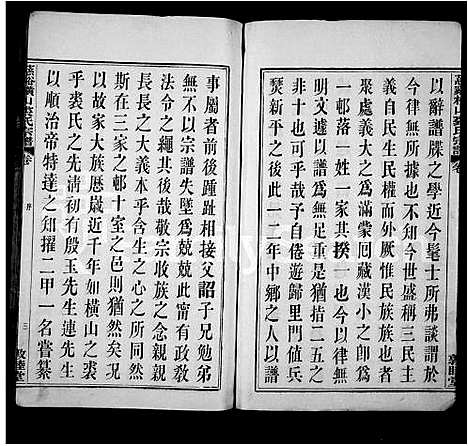 以辭譜牒之學近今髦士所弗談謂於
律無所據也不知今世盛稱三民主
義自民生民權而外厥惟民族族也者
聚處義大之為滿蒙回藏漢小之即為
一邨落一姓一家其揆一也今以律無
明文遂謂譜為無足重是猶指二五之
非一十可乎哉予自倦遊歸里門値兵
燹新平之後此一二年中鄉之人以譜
事屬者前後踵趾相接父詔子兄勉弟
無不以宗譜失墜為兢兢此甯有
法令之繩其後哉敬宗收族之念親親
長長之大義本乎含生之心之所同然
斯在三家之邨十室之邑則猶然矣况
以故家大族歷嵗近千年如橫山之裘
乎裘氏之先淸初有殷玉先生連先生
以順治帝特達之知擢二甲一名嘗纂
慈谿橫山裘氏宗譜 卷
序
三
敦睦堂